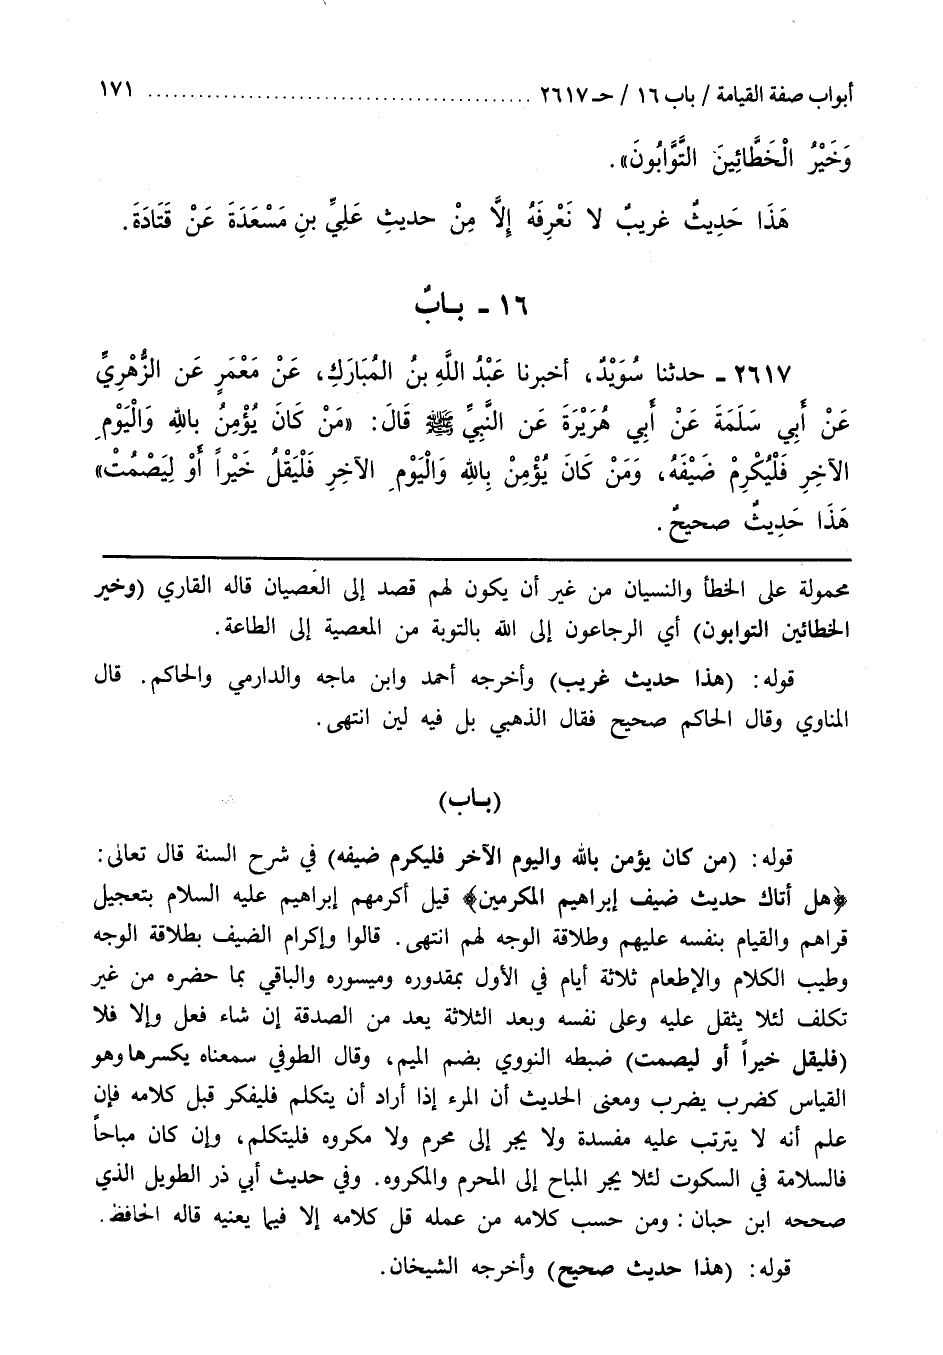 أبواب صفة القيامة / باب ١٦ / حـ ٢٦١٧ ........................................ ١٧١
وَخَيْرُ الْخَطَّائِينَ التَّوَّابُونَ».
هَذَا حَدِيثٌ غريبٌ لا نَعْرِفَهُ إِلَّا مِنْ حديثِ عَلِيِّ بنِ مَسْعَدَةَ عَنْ قَتَادَةَ.
١٦ ـ بـابٌ
٢٦١٧ ـ حدثنا سُوَيْدٌ، أخبرنا عَبْدُ اللَّهِ بنُ المُبَارَكِ، عَنْ مَعْمَرٍ عَن الزُّهْرِيِّ
عَنْ أَبِي سَلَمَةَ عَنْ أَبِي هُرَيْرَةَ عَن النَّبِيِّ ﷺ قَالَ: «مَنْ كَانَ يُؤْمِنُ بالله وَالْيَوْمِ
الآخِرِ فَلْيُكْرِمْ ضَيْفَهُ، وَمَنْ كَانَ يُؤْمِنْ بِالله وَالْيَوْمِ الآخِرِ فَلْيَقْلُ خَيْراً أَوْ لِيَصْمُتْ»
هَذَا حَدِيثٌ صحيحٌ.
محمولة على الخطأ والنسيان من غير أن يكون لهم قصد إلى العَصيان قاله القاري (وخير
الخطائين التوابون) أي الرجاعون إلى الله بالتوبة من المعصية إلى الطاعة.
قوله: (هذا حديث غريب) وأخرجه أحمد وابن ماجه والدارمي والحاكم. قال
المناوي وقال الحاكم صحيح فقال الذهبي بل فيه لين انتهى.
(بـاب)
قوله: (من كان يؤمن بالله واليوم الآخر فليكرم ضيفه) في شرح السنة قال تعالى:
﴿هل أتاك حديث ضيف إبراهيم المكرمين﴾ قيل أكرمهم إبراهيم عليه السلام بتعجيل
قراهم والقيام بنفسه عليهم وطلاقة الوجه لهم انتهى. قالوا وإكرام الضيف بطلاقة الوجه
وطيب الكلام والإطعام ثلاثة أيام في الأول بمقدوره وميسوره والباقي بما حضره من غير
تكلف لئلا يثقل عليه وعلى نفسه وبعد الثلاثة يعد من الصدقة إن شاء فعل وإلا فلا
(فليقل خيراً أو ليصمت) ضبطه النووي بضم الميم، وقال الطوفي سمعناه يكسرها وهو
القياس كضرب يضرب ومعنى الحديث أن المرء إذا أراد أن يتكلم فليفكر قبل كلامه فإن
علم أنه لا يترتب عليه مفسدة ولا يجر إلى محرم ولا مكروه فليتكلم، وإن كان مباحاً
فالسلامة في السكوت لئلا يجر المباح إلى المحرم والمكروه. وفي حديث أبي ذر الطويل الذي
صححه ابن حبان : ومن حسب كلامه من عمله قل كلامه إلا فيما يعنيه قاله الحافظ.
قوله: (هذا حديث صحيح) وأخرجه الشيخان.